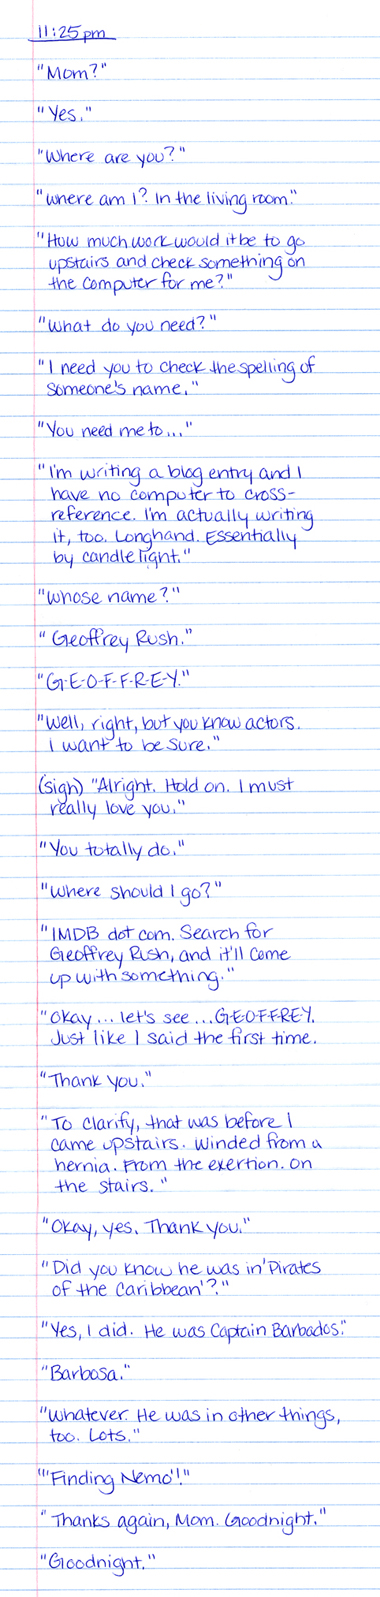 11:25pm
"Mom?"
"Yes."
"Where are you?"
"Where am I? In the living room."
"How much work would it be to go
upstairs and check something on
the computer for me?"
"What do you need?"
"I need you to check the spelling of
someone's name."
"You need me to..."
"I'm writing a blog entry and I
have no computer to cross-
reference. I'm actually writing
it, too. Longhand. Essentially
by candlelight."
"Whose name?"
"Geoffrey Rush."
"G-E-O-F-F-R-E-Y."
"Well, right, but you know actors.
I want to be sure."
(sigh) "Alright. Hold on. I must
really love you."
"You totally do."
"Where should I go?"
"IMDB dot com. Search for
Geoffrey Rush, and it'll come
up with something."
"Okay... let's see... G-E-O-F-F-R-E-Y.
Just like I said the first time.
"Thank you."
"To clarify, that was before I
came upstairs. Winded from a
hernia. From the exertion. On
the stairs."
"Okay, yes. Thank you."
"Did you know he was in 'Pirates
of the Caribbean'?"
"Yes, I did. He was Captain Barbados."
"Barbosa."
"Whatever. He was in other things,
too. Lots."
"'Finding Nemo'!"
"Thanks again, Mom. Goodnight."
"Goodnight."